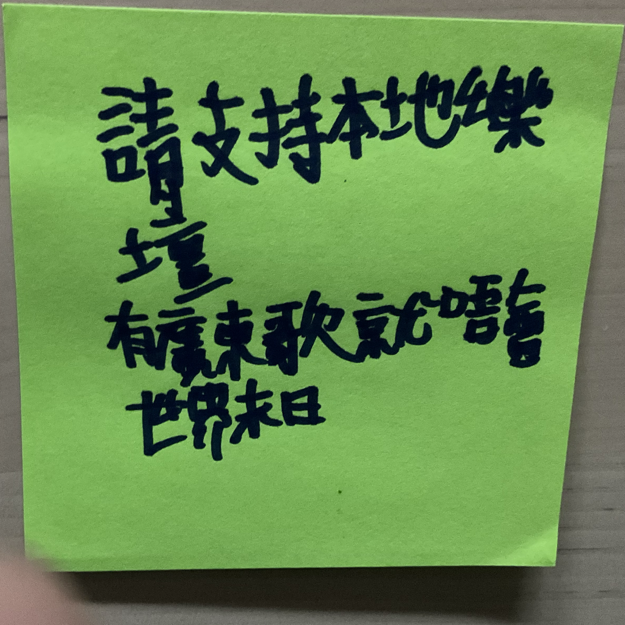 請支持本地樂
壇
有廣東歌就唔會
世界末日